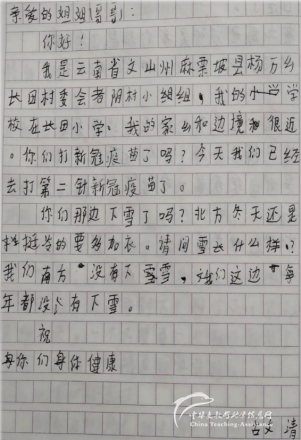 亲爱的姐姐(哥哥):
你好!
我是云南省文山州麻栗坡县杨万乡
长田村委会者阴村小组组,我的小学
校在长田小学。我的家乡和边境很近
。你们打新冠疫苗了吗?今天我们已经
去打第二针新冠疫苗了。
你们那边下雪了吗?北方冬天还是
挺冷的要多加衣。请问雪长什么样?
我们南方没有下雪,我们这边每
年都没有下雪。
祝
你们身体健康
清
China Teaching-Assistance